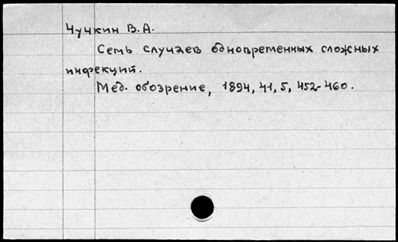 Чучкин В.А.
Семь случаев одновременных сложных
инфекций.
Мед. обозрение, 1894, 41, 5, 452-460.